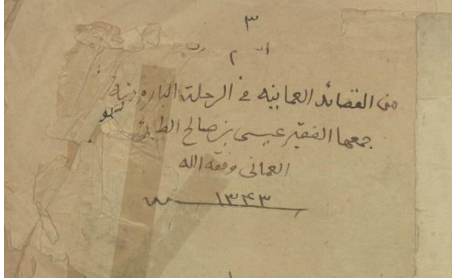 ٣
٢
من القصائد العمانيه في الرحلة البارونيه
جمعها الفقير عيسى بن صالح الطائي
العماني وفقه الله
١٣٤٣